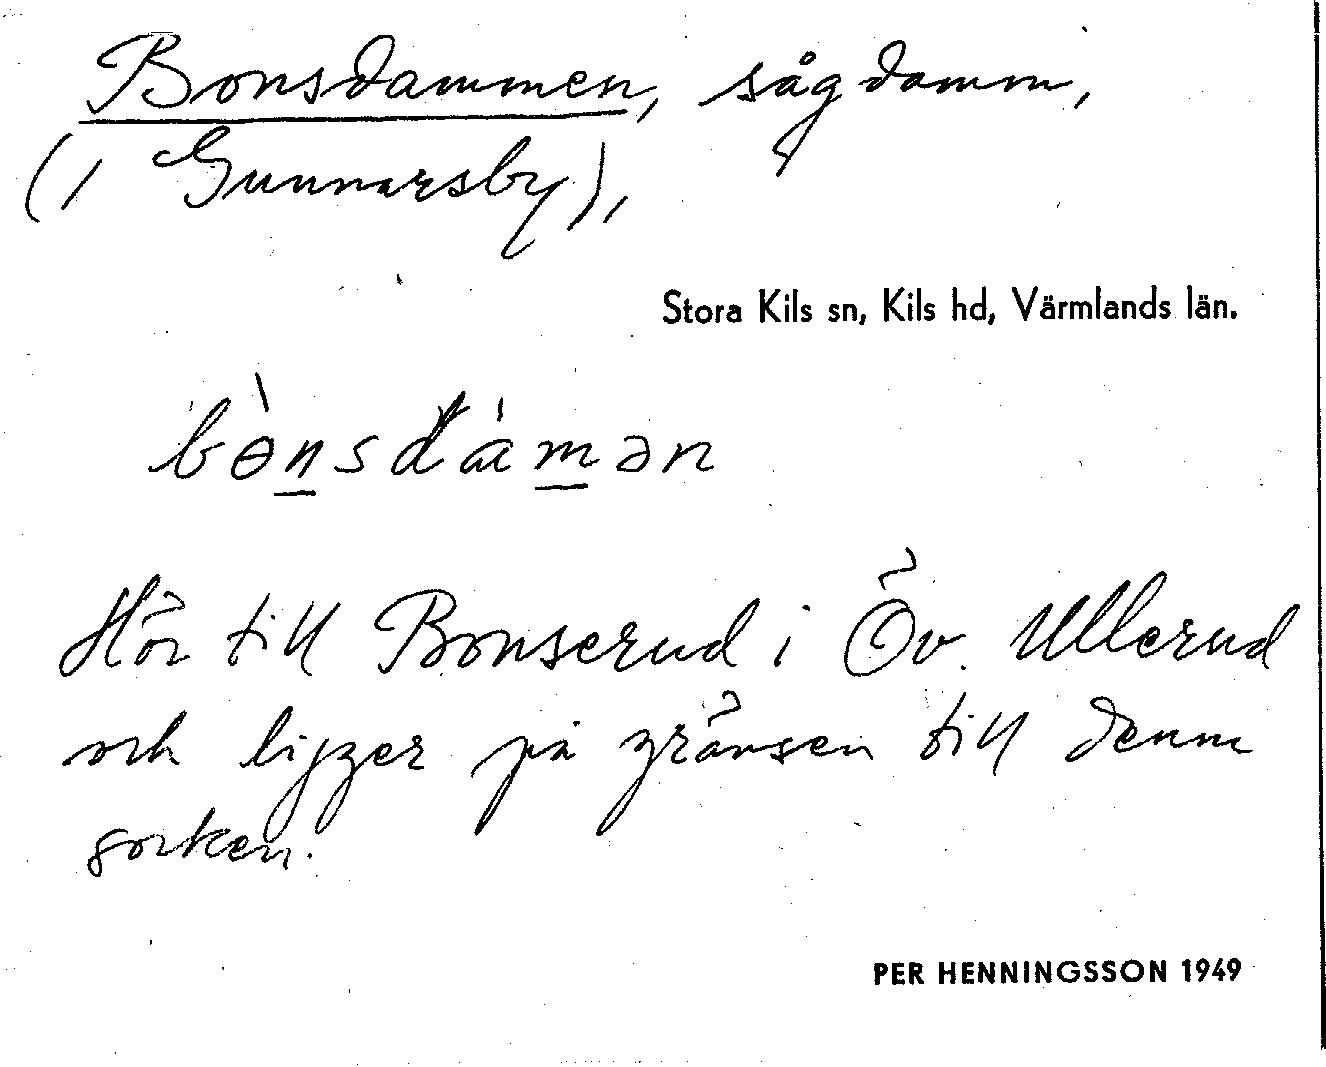 Bonsdammen, sågdamm,
(i Gunnarsby),
Stora Kils sn, Kils hd, Värmlands län.
bɵ̀nsdàmən
Hör till Bonserud i Öv. Ullerud
och ligger på gränsen till denna
socken.
PER HENNINGSSON 1949